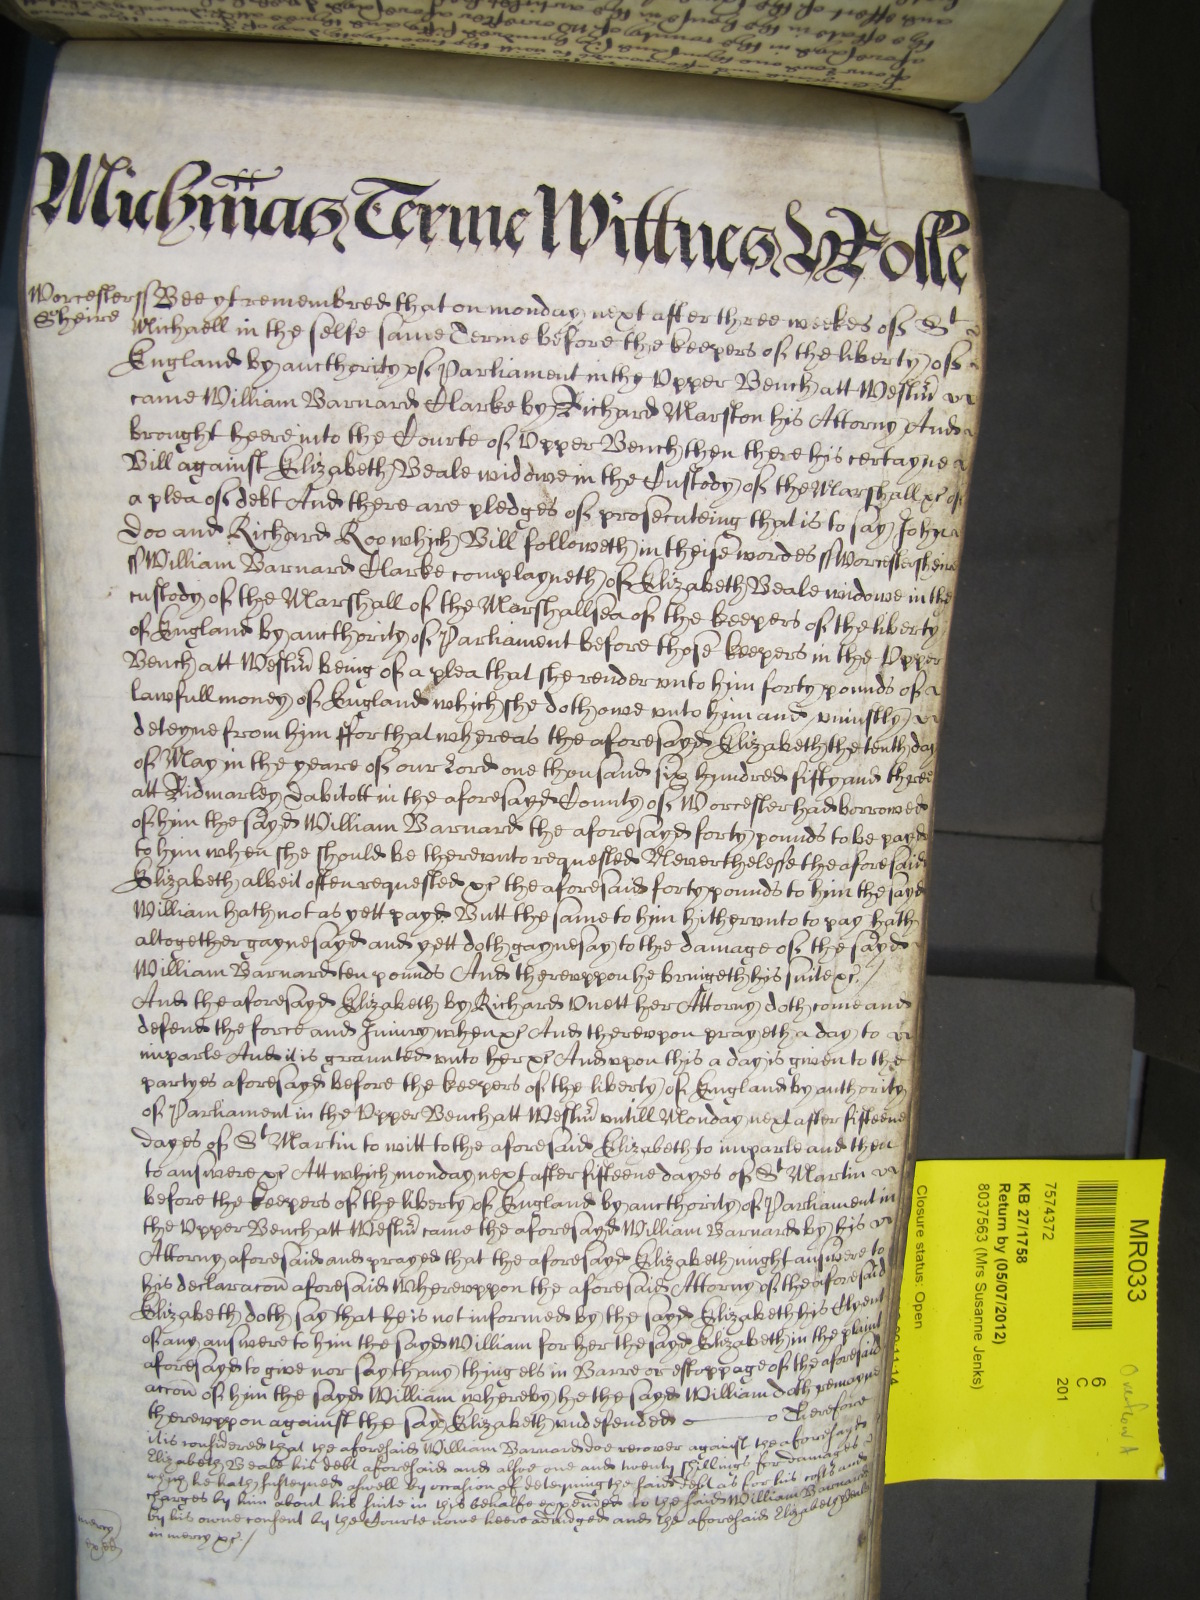 Mich̃mas Terme Wittnes H Rolle
Worcester ss Bee yt remembred that on monday next after three weekes of St
Sheire Michaell in the selfe same Terme before the keepers of the liberty of
England by aucthority of Parliament in the Upper Bench att Westm̃
came William Barnard Clarke by Richard Marston his Attorny And
brought heere into the Courte of Upper Bench then there his certayne
Bill against Elizabeth Beale widdowe in the Custody of the Marshall &c of
a plea of debt And there are pledges of prosecuteing that is to say John
Doo and Richard Roo which Bill followeth in theise wordes ss Worcestersheire
ss William Barnard Clarke complayneth of Elizabeth Beale widowe in the
custody of the Marshall of the Marshallsea of the keepers of the liberty
of England by aucthority of Parliament before those keepers in the Upper
Bench att Westm̃ being of a plea that she render unto him forty pounds of
lawfull money of England which she doth owe unto him and uniustly
deteyne from him ffor that whereas the aforesayd Elizabeth the tenth day
of May in the yeare of our Lord one thousand six hundred fifty and three
att Ridmarley Dabitott in the aforesayd County of Worcester had borrowed
of him the sayd William Barnard the aforesayd forty pounds to be payd
to him when she should be thereunto requested Neverthelesse the aforesaid
Elizabeth albeit often requested &c the aforesaid forty pounds to him the sayd
William hath not as yett payd Butt the same to him hitherunto to pay hath
altogether gaynesayd and yett doth gaynesay to the damage of the sayd
William Barnard ten pounds And thereuppon he bringeth his suite &c./
And the aforesayd Elizabeth by Richard Unett her Attorny doth come and
defend the force and Iniury when &c And thereupon prayeth a day to
imparle And it is graunted unto her &c And upon this a day is given to the
partyes aforesayd before the keepers of the liberty of England by authority
of Parliament in the Upper Bench att Westm̃ untill Monday next after fifteene
dayes of St Martin to witt to the aforesaid Elizabeth to imparle and then
to answere &c Att which monday next after fifteene dayes of St Martin
before the keepers of the liberty of England by aucthority of Parliament in
the Upper Bench att Westm̃ came the aforesayd William Barnard by his
Attorny aforesaid and prayed that the aforesayd Elizabeth might answere to
his declaracoñ aforesaid Whereuppon the aforesaid Attorny of the aforesaid
Elizabeth doth say that he is not informed by the sayd Elizabeth his Clyent
of any answere to him the sayd William for her the sayd Elizabeth in the plaint
aforesayd to give nor sayth any thing els in Barre or estoppage of the aforesaid
accoñ of him the sayd William whereby he the sayd William doth remayne
thereuppon against the sayd Elizabeth undefended Therefore
it is considered that the aforesaid William Barnard doe recover against the aforesayd
Elizabeth Beale his debt aforesaid and alsoe one and twenty shillings for damages
which he hath susteyned aswell by occasion of deteyning the said debt as for his costs and
charges by him about his suite in this behalfe expended to the said William Barnard
by his owne consent by the Courte nowe heere adiudged and the aforesaid Elizabeth Beale
in mercy &c./
mercy
MR033
6
C
201
7574372
KB 27/1758
Return by (05/07/2012)
8037563 (Mrs Susanne Jenks)
Closure status: Open
Overflow A